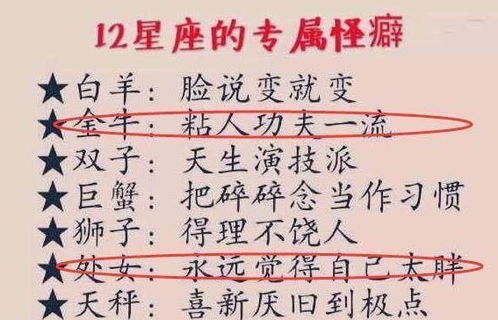 12星座的专属怪癖
★白羊：脸说变就变
★金牛：粘人功夫一流
★双子：天生演技派
★巨蟹：把碎碎念当作习惯
★狮子：得理不饶人
★处女：永远觉得自己太胖
★天秤：喜新厌旧到极点